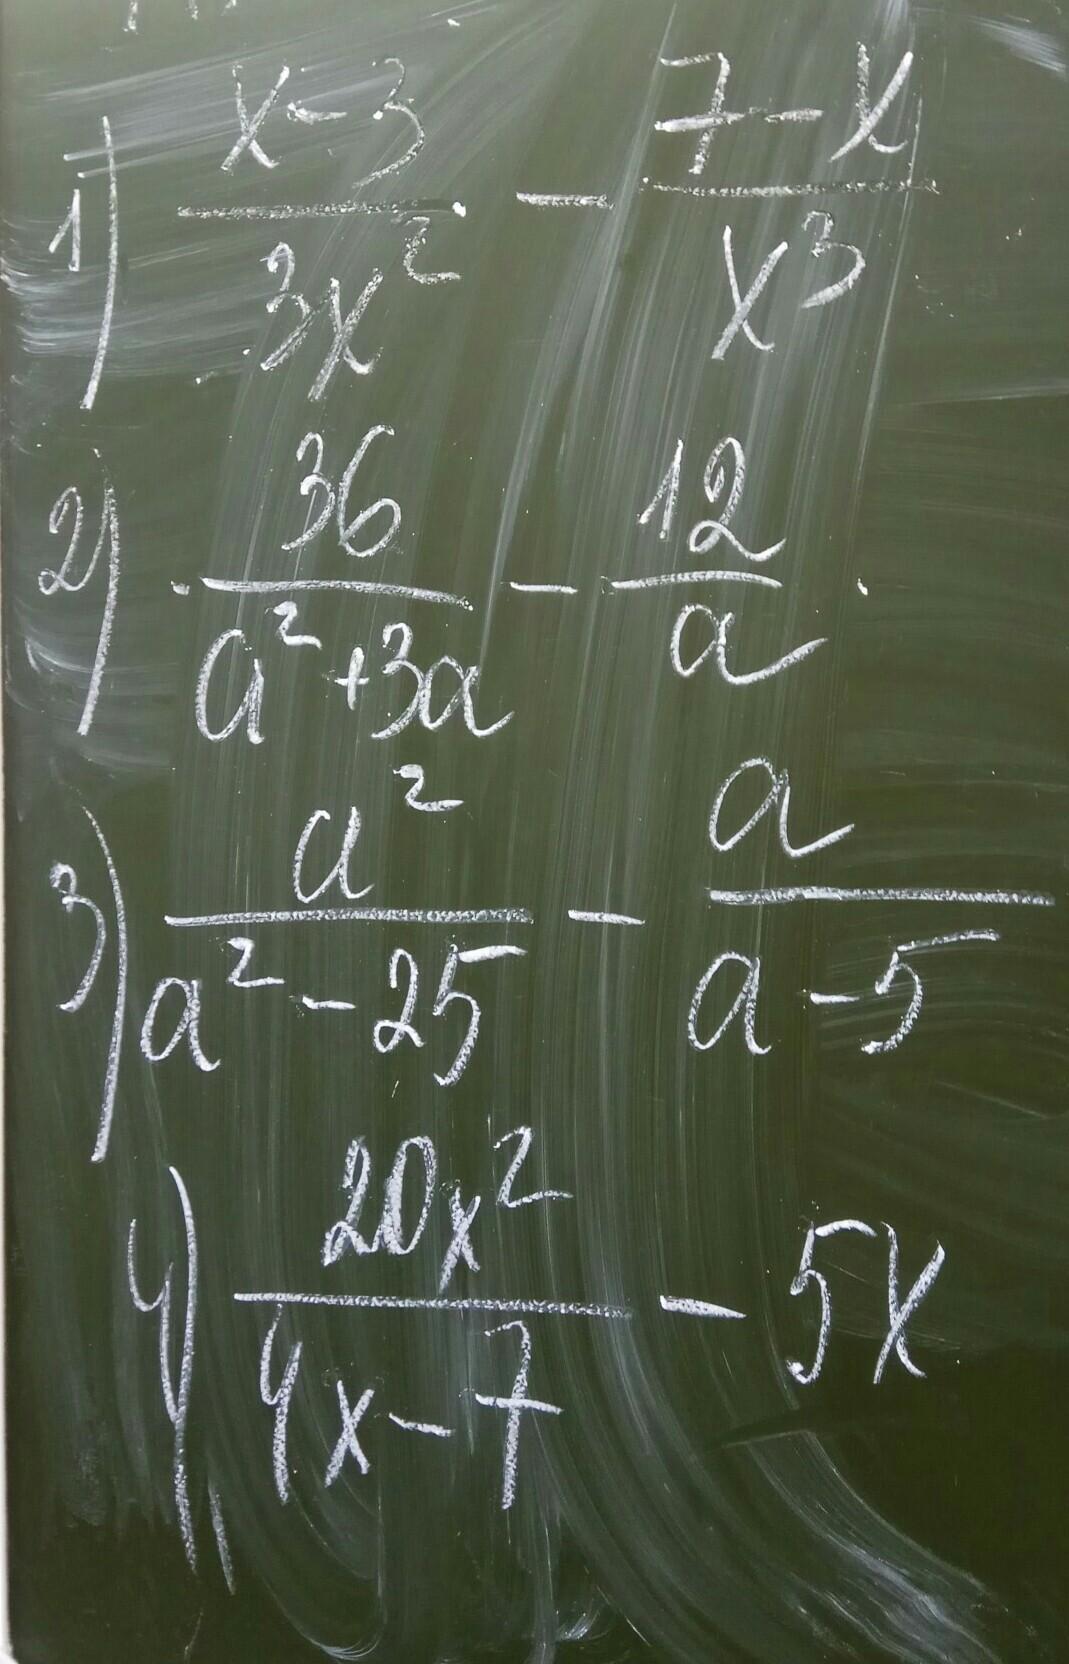 1) (x-3)/(3x²) - (7-x)/(x³)
2) 36/(a²+3a) - 12/a
3) a²/(a²-25) - a/(a-5)
4) 20x²/(4x-7) - 5x